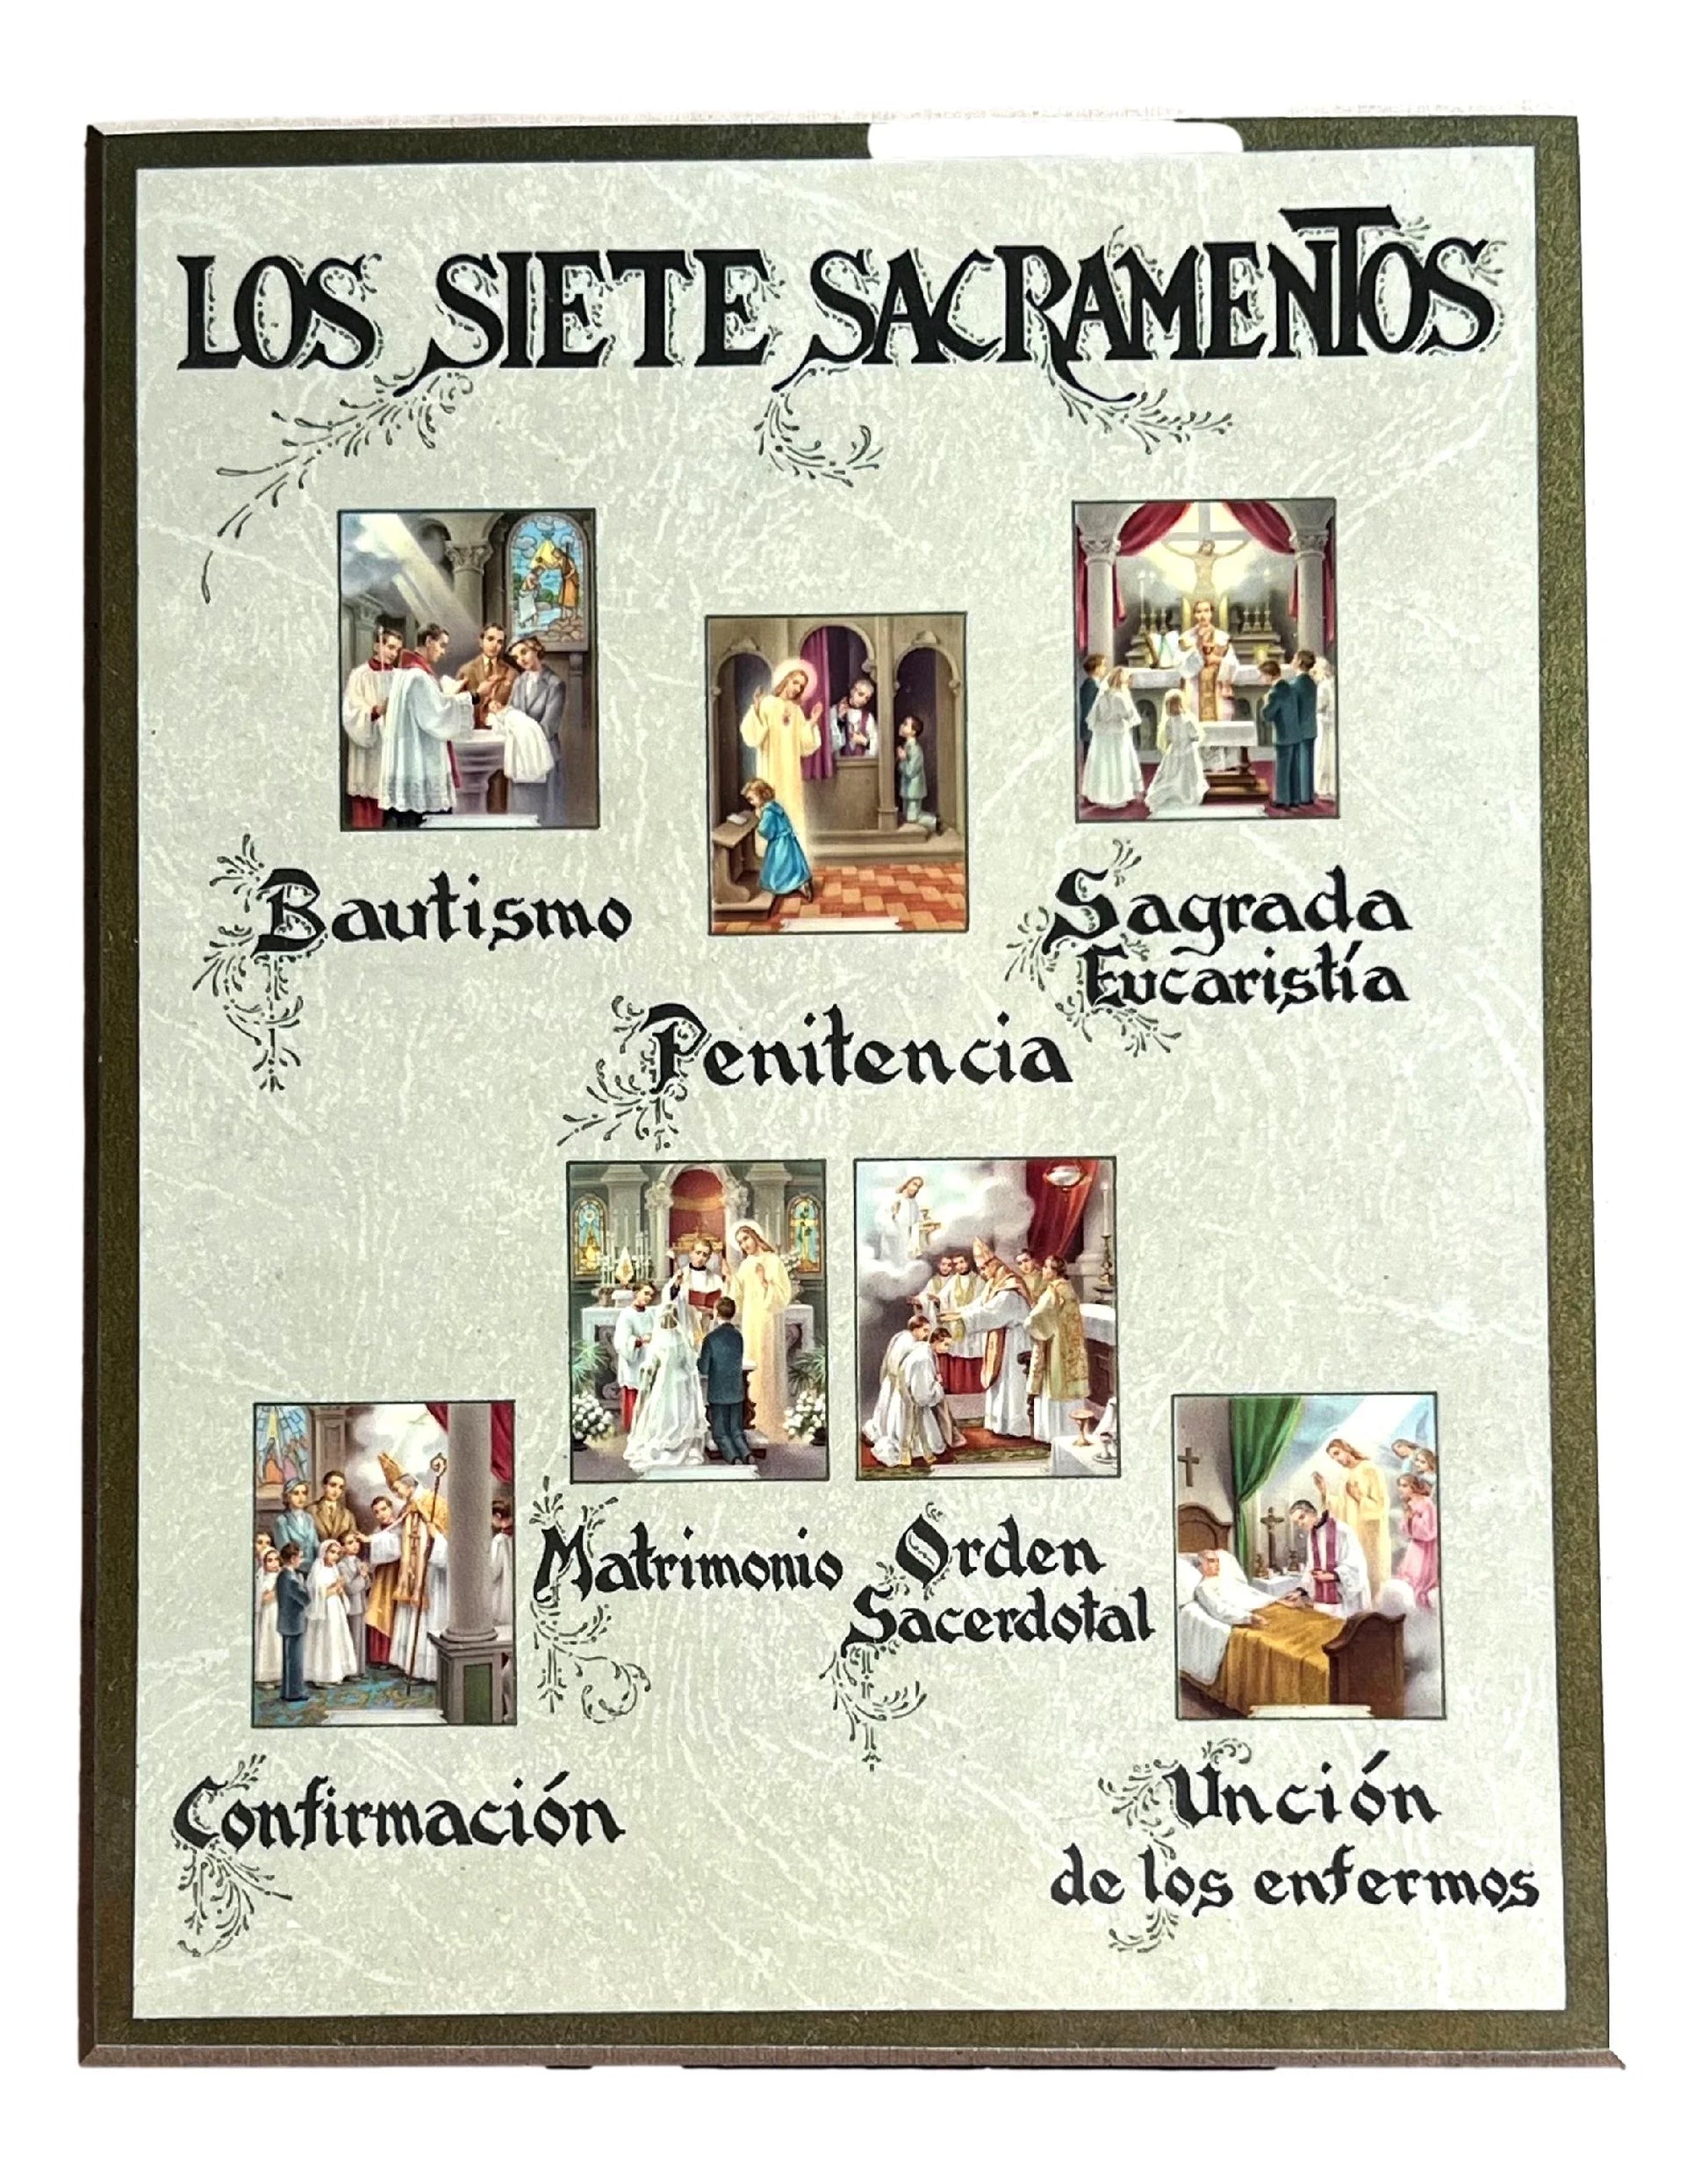 LOS SIETE SACRAMENTOS
Bautismo
Penitencia
Sagrada
Eucaristía
Confirmación
Matrimonio
Orden
Sacerdotal
Unción
de los enfermos